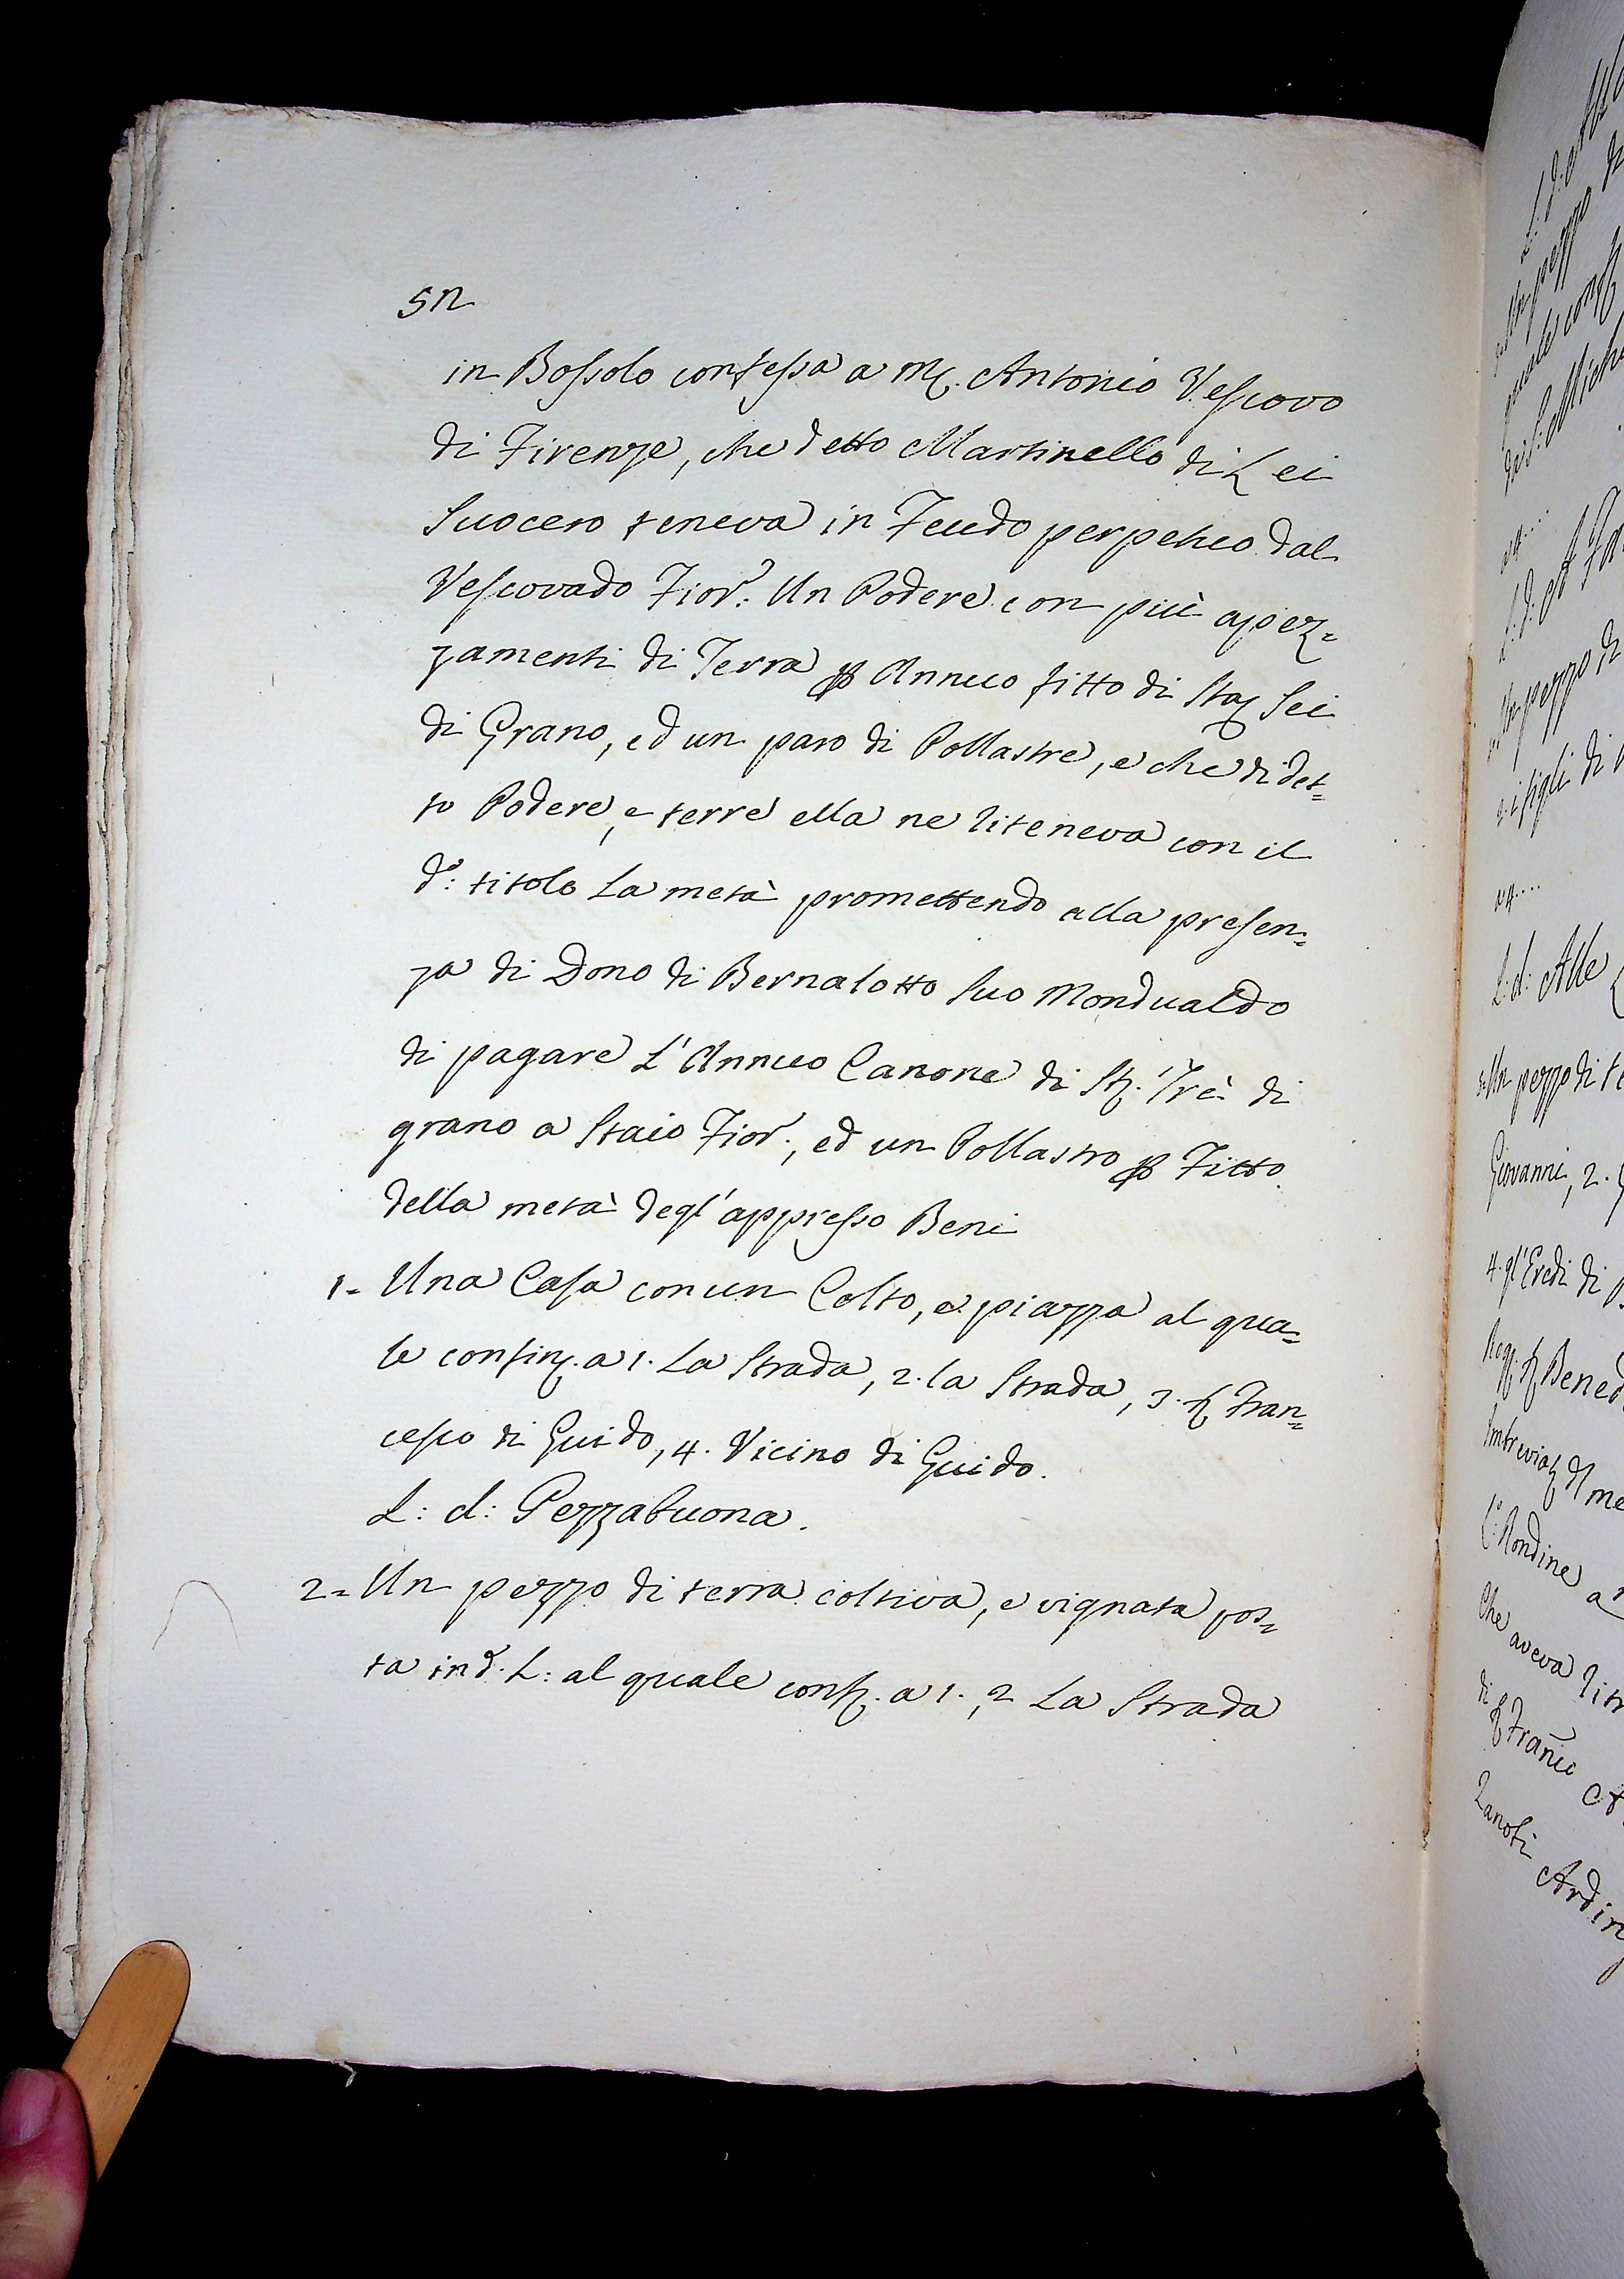 52
in Bossolo confessa a M. Antonio Vescovo
di Firenze, che detto Martinello di Lei
Suocero teneva in Feudo perpetuo dal
Vescovado Fior: Un Podere con più apez=
zamenti di Terra p Annuo fitto di Sta Sei
di Grano, ed un paro di Pollastre, e che di det=
to Podere, e terre ella ne riteneva con il
do: titolo La metà promettendo alla presen=
za di Dono di Bernalotto Suo Mondualdo
di pagare L'Annuo Canone di St. Trè di
grano a Staio Fior., ed un Pollastro p Fitto
della metà degl'appresso Beni
1= Una Casa con un Colto, e piazza al qua=
le confin. a 1. La Strada, 2. la Strada, 3. Fran=
cesco di Guido, 4. Vicino di Guido.
L: d: Pezzabuona.
2= Un pezzo di terra coltiva, e vignata pos=
ta in d. L: al quale conf. a 1., 2 La Strada
Un pezzo di
quale conf
L: d: A
Un pezzo di
i figli di
L: d: Alle
Un pezzo di te
Giovanni, 2.
4. gl'Eredi di
Bened
me
Rondine a
Che aveva
di
Zanobi